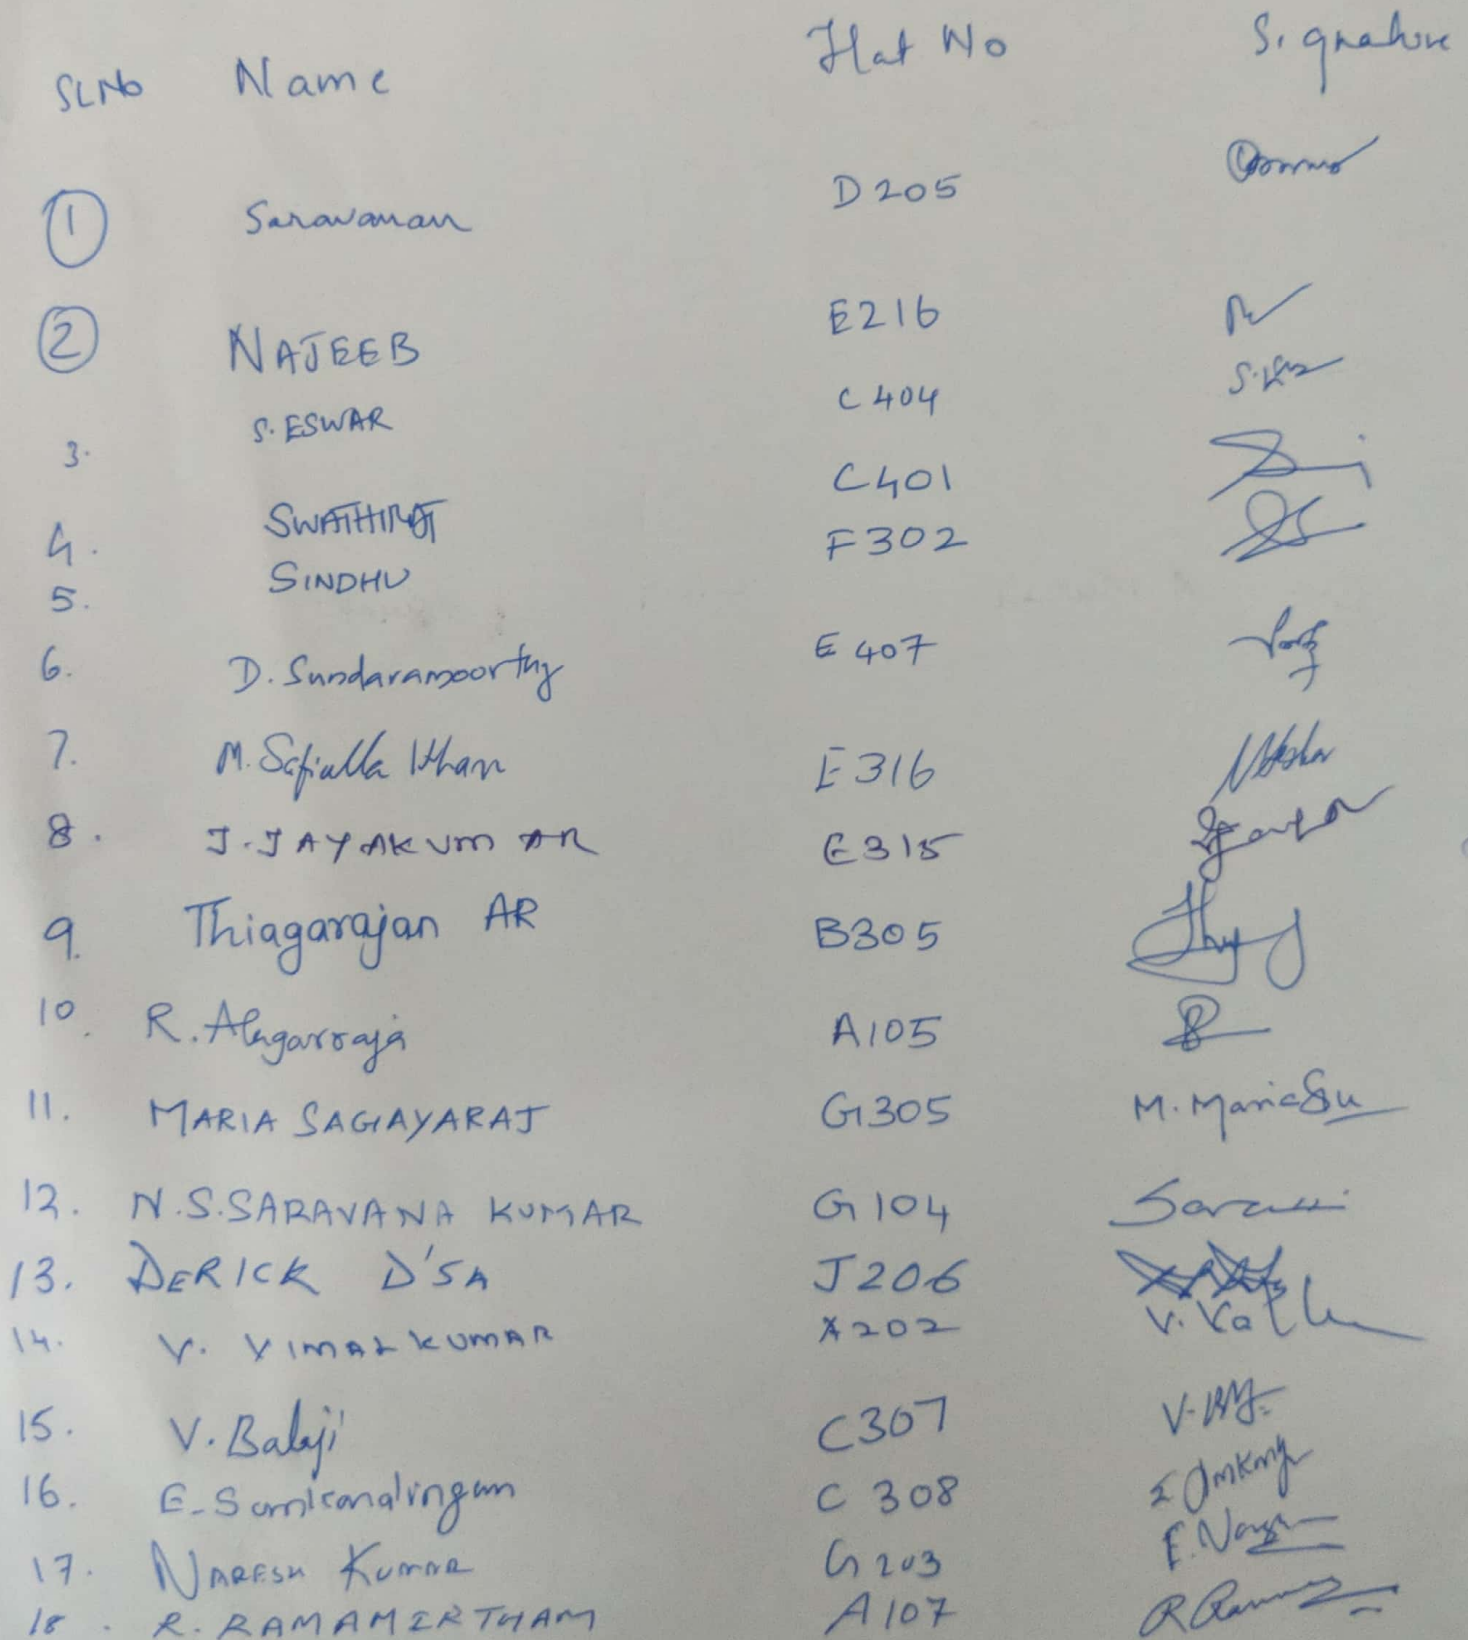 SLNo Name Flat No Signature
1 Saravanan D205
2 NAJEEB E216
3. S. ESWAR C404
4. C401
5. SINDHU F302
6. D. Sundaramoorthy E 407
7. M. Safialla Khan E316
8. J. JAYAKUMAR E315
9. Thiagarajan AR B305
10. R. Alagarraja A105
11. MARIA SAGAYARAJ G305 M. Maria
12. N.S.SARAVANA KUMAR G104
13. DERICK D'SA J206
14. V. VIMALKUMAR 202
15. V. Balaji C307
16. E. C 308
17. NARESH KUMAR G203
18. R. RAMAMIRTHAM A107